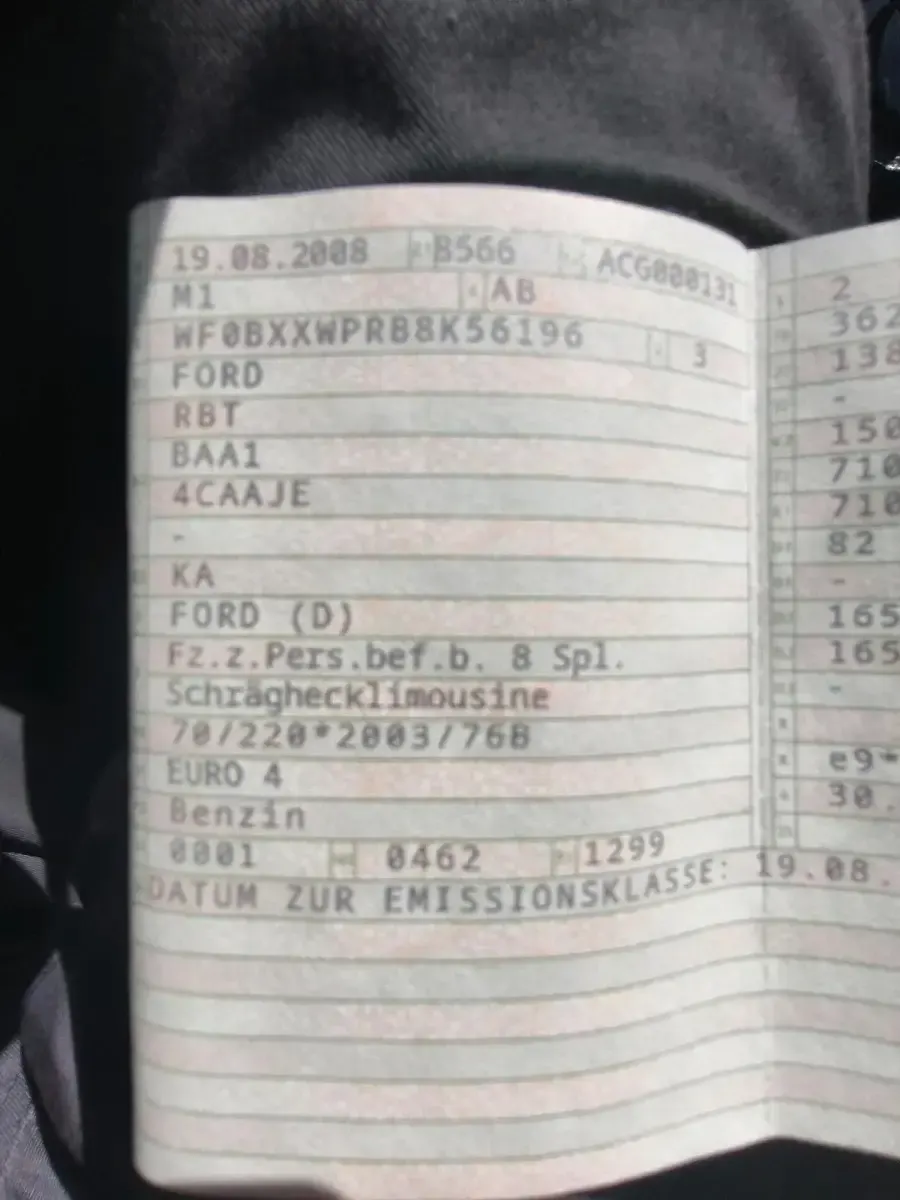 19.08.2008 8566 ACG000131
M1 AB
WF0BXXWPRB8K56196 3
FORD
RBT
BAA1
4CAAJE
-
KA
FORD (D)
Fz.z.Pers.bef.b. 8 Spl.
Schräghecklimousine
70/220*2003/76B
EURO 4
Benzin
0001 0462 1299
DATUM ZUR EMISSIONSKLASSE: 19.08.
2
362
138
-
150
710
710
82
-
165
165
-
e9*
30.